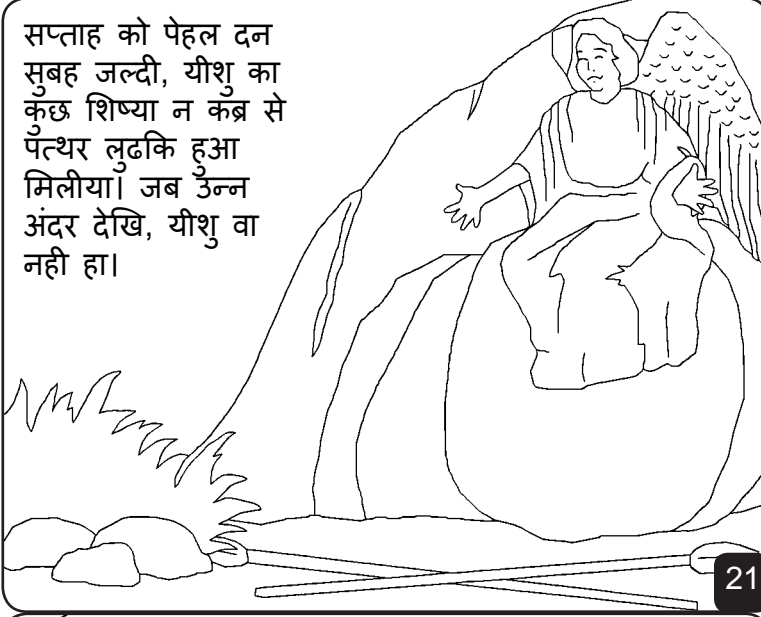 सप्ताह को पेहल दन
सुबह जल्दी, यीशु का
कुछ शिष्या न कब्र से
पत्थर लुढकि हुआ
मिलीया। जब उन्न
अंदर देखि, यीशु वा
नही हा।
21